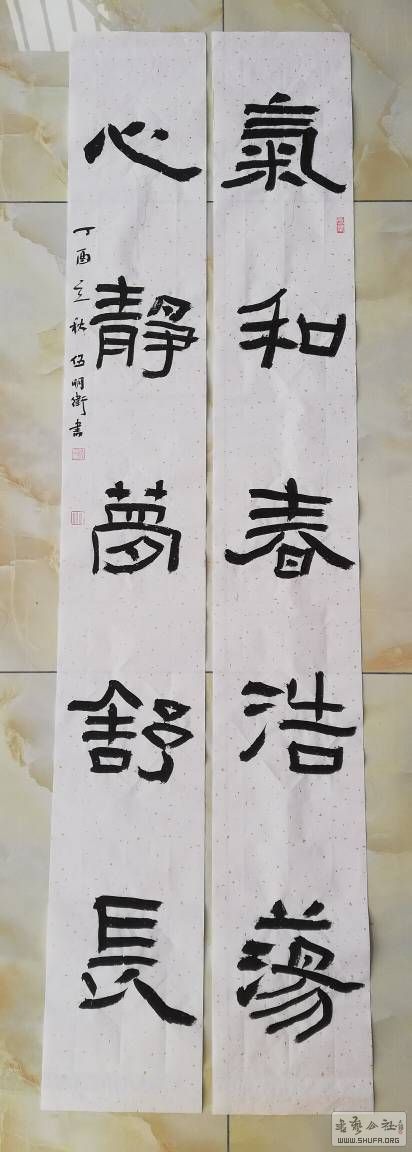 氣和春浩蕩
心靜夢舒長
丁酉立秋伍明衛書
書藝公社
WWW.SHUFA.ORG